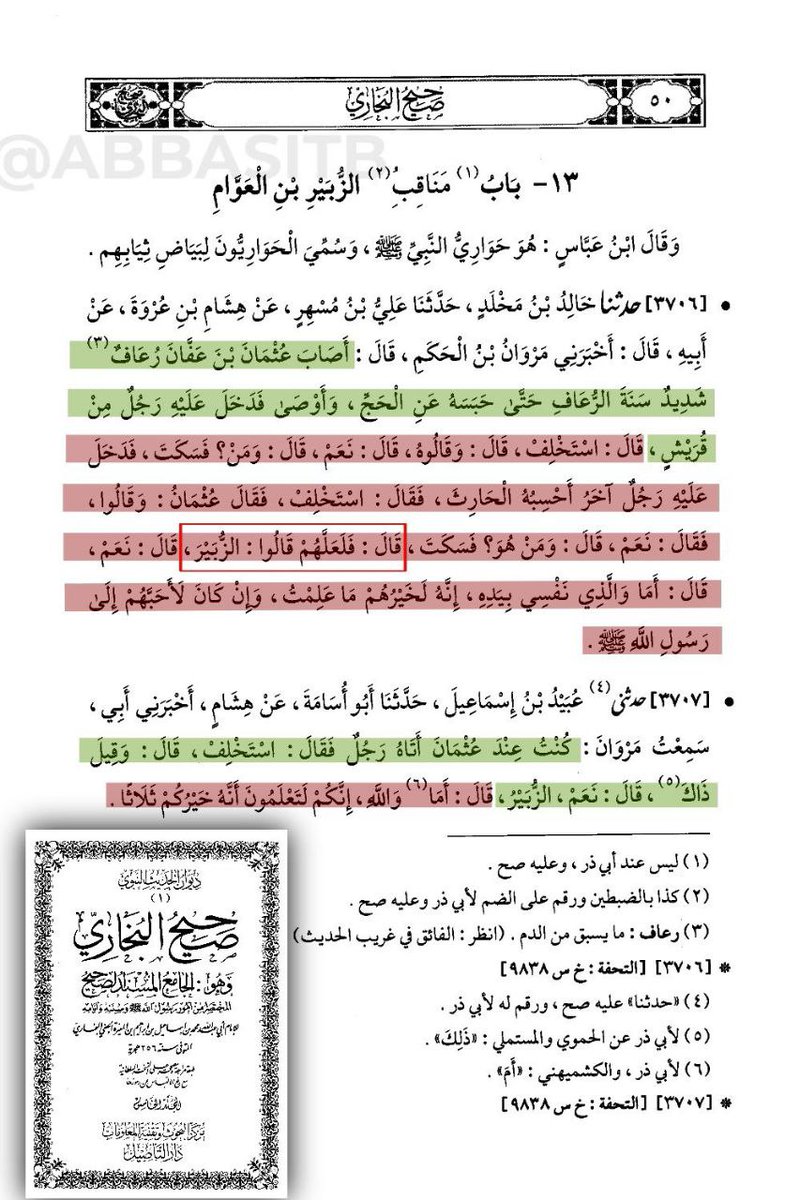 صحيح البخاري
٥٠
@ABBASITB
١٣- بَابُ (١) مَنَاقِبُِ (٢) الزُّبَيْرِ بْنِ الْعَوَّامِ
وَقَالَ ابْنُ عَبَّاسٍ : هُوَ حَوَارِيُّ النَّبِيِّ ﷺ ، وَسُمِّيَ الْحَوَارِيُّونَ لِبَيَاضِ ثِيَابِهِم .
• [٣٧٠٦] حدثنا خَالِدُ بْنُ مَخْلَدٍ ، حَدَّثَنَا عَلِيُّ بْنُ مُسْهِرٍ ، عَنْ هِشَامِ بْنِ عُرْوَةَ ، عَنْ
أَبِيهِ ، قَالَ : أَخْبَرَنِي مَرْوَانُ بْنُ الْحَكَمِ ، قَالَ : أَصَابَ عُثْمَانَ بْنَ عَفَّانَ رُعَافٌ (٣)
شَدِيدٌ سَنَةَ الرُّعَافِ حَتَّىٰ حَبَسَهُ عَنِ الْحَجِّ ، وَأَوْصَىٰ فَدَخَلَ عَلَيْهِ رَجُلٌ مِنْ
قُرَيْشٍ ، قَالَ : اسْتَخْلِفْ ، قَالَ : وَقَالُوهُ ، قَالَ : نَعَمْ ، قَالَ : وَمَنْ؟ فَسَكَتَ ، فَدَخَلَ
عَلَيْهِ رَجُلٌ آخَرُ أَحْسِبُهُ الْحَارِثَ ، فَقَالَ : اسْتَخْلِفْ ، فَقَالَ عُثْمَانُ : وَقَالُوا ،
فَقَالَ : نَعَمْ ، قَالَ : وَمَنْ هُوَ؟ فَسَكَتَ ، قَالَ : فَلَعَلَّهُمْ قَالُوا : الزُّبَيْرَ ، قَالَ : نَعَمْ ،
قَالَ : أَمَا وَالَّذِي نَفْسِي بِيَدِهِ ، إِنَّهُ لَخَيْرُهُمْ مَا عَلِمْتُ ، وَإِنْ كَانَ لَأَحَبَّهُمْ إِلَىٰ
رَسُولِ اللَّهِ ﷺ .
• [٣٧٠٧] حدثني (٤) عُبَيْدُ بْنُ إِسْمَاعِيلَ ، حَدَّثَنَا أَبُو أُسَامَةَ ، عَنْ هِشَامٍ ، أَخْبَرَنِي أَبِي ،
سَمِعْتُ مَرْوَانَ : كُنْتُ عِنْدَ عُثْمَانَ أَتَاهُ رَجُلٌ فَقَالَ : اسْتَخْلِفْ ، قَالَ : وَقِيلَ
ذَاكَ (٥) ، قَالَ : نَعَمْ ، الزُّبَيْرُ ، قَالَ : أَمَا (٦) وَاللَّهِ ، إِنَّكُمْ لَتَعْلَمُونَ أَنَّهُ خَيْرُكُمْ ثَلَاثًا .
(١) ليس عند أبي ذر ، وعليه صح .
(٢) كذا بالضبطين ورقم على الضم لأبي ذر وعليه صح .
(٣) رعاف : ما يسبق من الدم . (انظر : الفائق في غريب الحديث)
* [٣٧٠٦] [التحفة : خ س ٩٨٣٨]
(٤) «حدثنا» عليه صح ، ورقم له لأبي ذر .
(٥) لأبي ذر عن الحموي والمستملي : «ذَلِكَ» .
(٦) لأبي ذر ، والكشميهني : «أَمَ» .
* [٣٧٠٧] [التحفة : خ س ٩٨٣٨]
ديوان الحديث النبوي
(١)
صحيح البخاري
وهو : الجامع المسند الصحيح
المختصر من أمور رسول الله ﷺ وسننه وأيامه
للإمام أبي عبد الله محمد بن إسماعيل بن إبراهيم بن المغيرة الجعفي البخاري
المتوفى سنة ٢٥٦ هجرية
المجلد الخامس
مركز البحوث وتقنية المعلومات
دار التأصيل